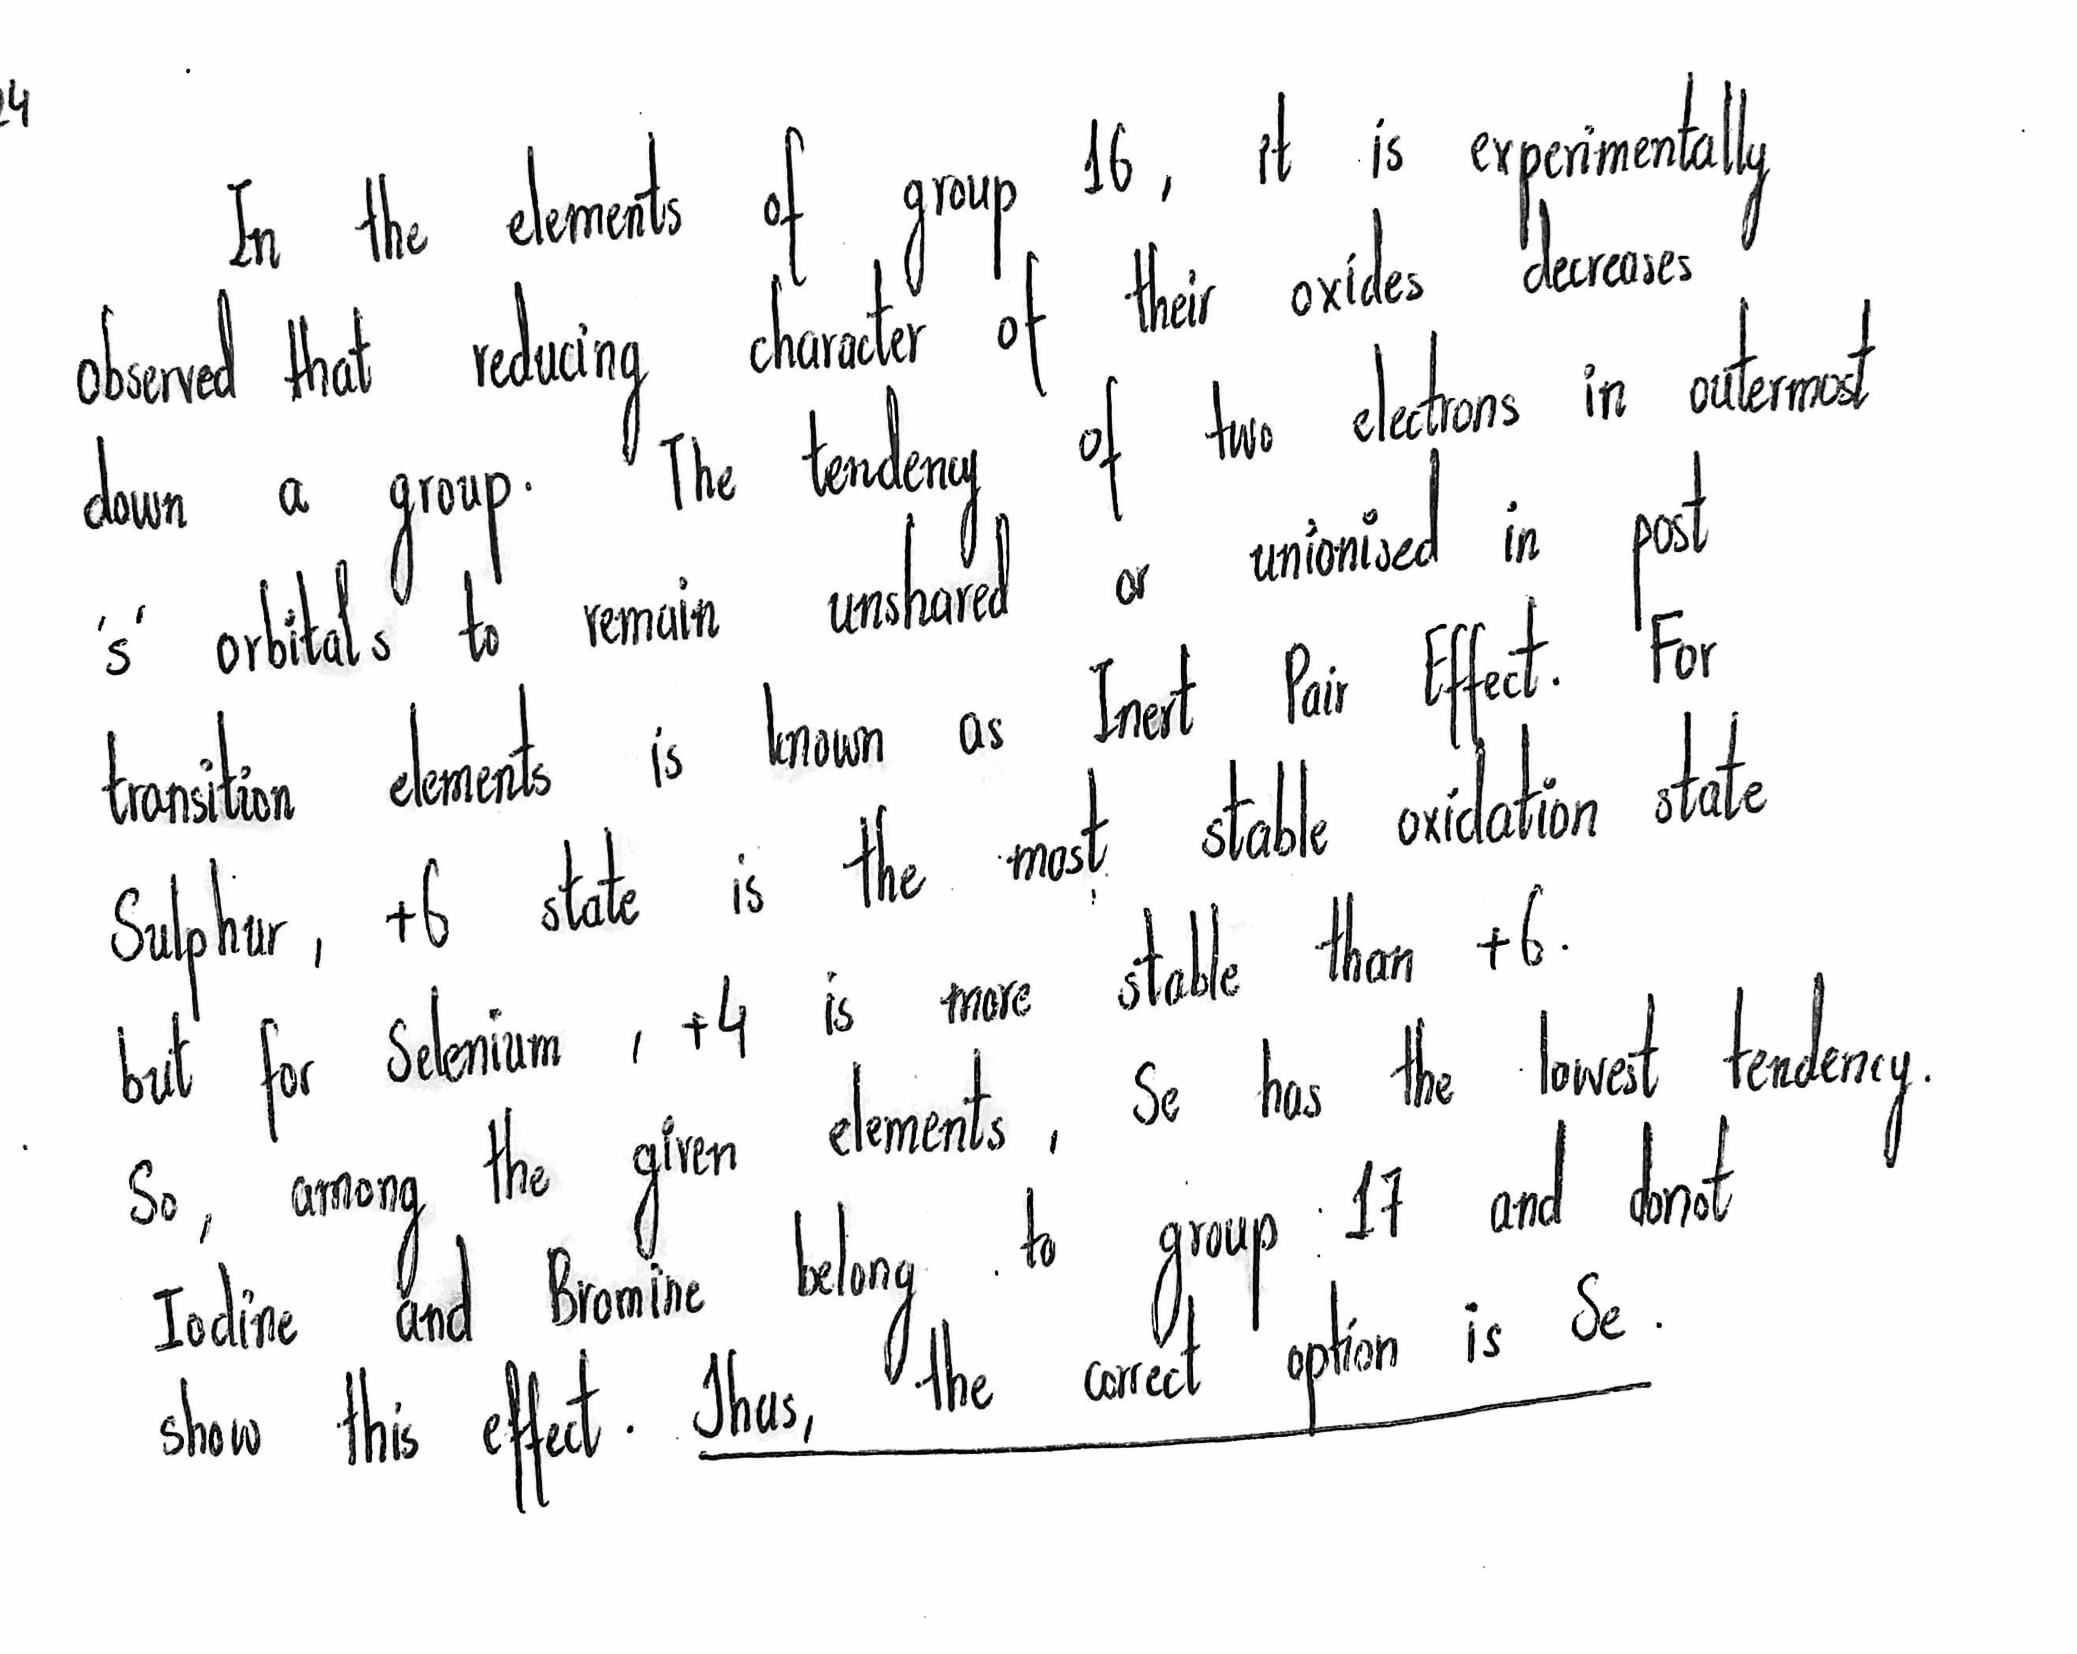 24
In the elements of group 16, it is experimentally
observed that reducing character of their oxides decreases
down a group. The tendency of two electrons in outermost
's' orbitals to remain unshared or unionised in post
transition elements is known as Inert Pair Effect. For
Sulphur, +6 state is the most stable oxidation state
but for Selenium, +4 is more stable than +6.
So, among the given elements, Se has the lowest tendency.
Iodine and Bromine belong to group 17 and donot
show this effect. Thus, the correct option is Se.